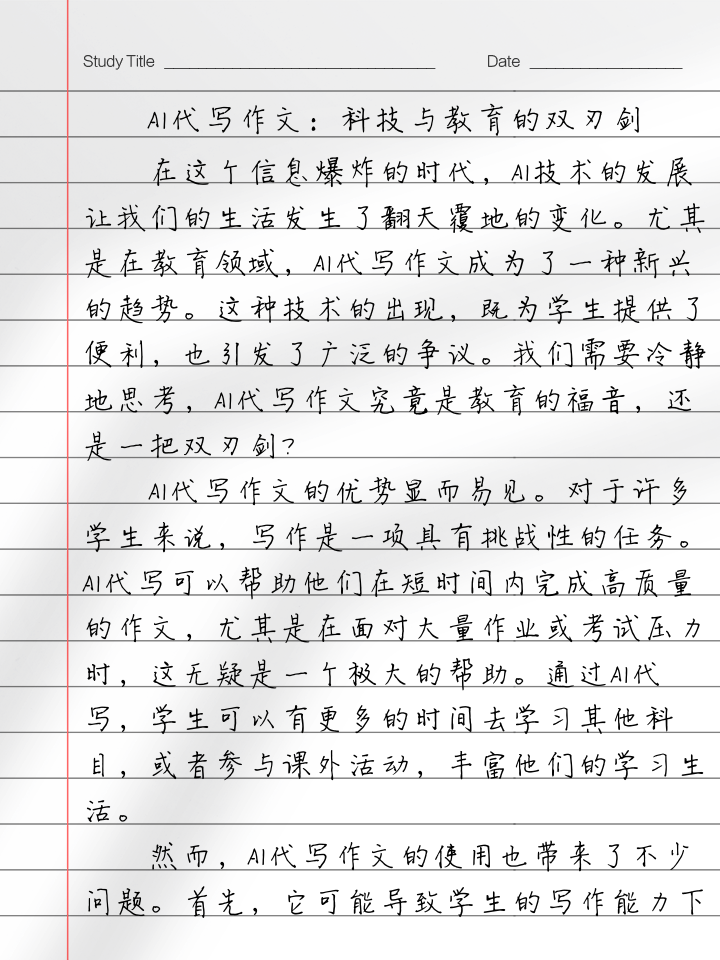 Study Title Date
AI代写作文：科技与教育的双刃剑
在这个信息爆炸的时代，AI技术的发展
让我们的生活发生了翻天覆地的变化。尤其
是在教育领域，AI代写作文成为了一种新兴
的趋势。这种技术的出现，既为学生提供了
便利，也引发了广泛的争议。我们需要冷静
地思考，AI代写作文究竟是教育的福音，还
是一把双刃剑？
AI代写作文的优势显而易见。对于许多
学生来说，写作是一项具有挑战性的任务。
AI代写可以帮助他们在短时间内完成高质量
的作文，尤其是在面对大量作业或考试压力
时，这无疑是一个极大的帮助。通过AI代
写，学生可以有更多的时间去学习其他科
目，或者参与课外活动，丰富他们的学习生
活。
然而，AI代写作文的使用也带来了不少
问题。首先，它可能导致学生的写作能力下